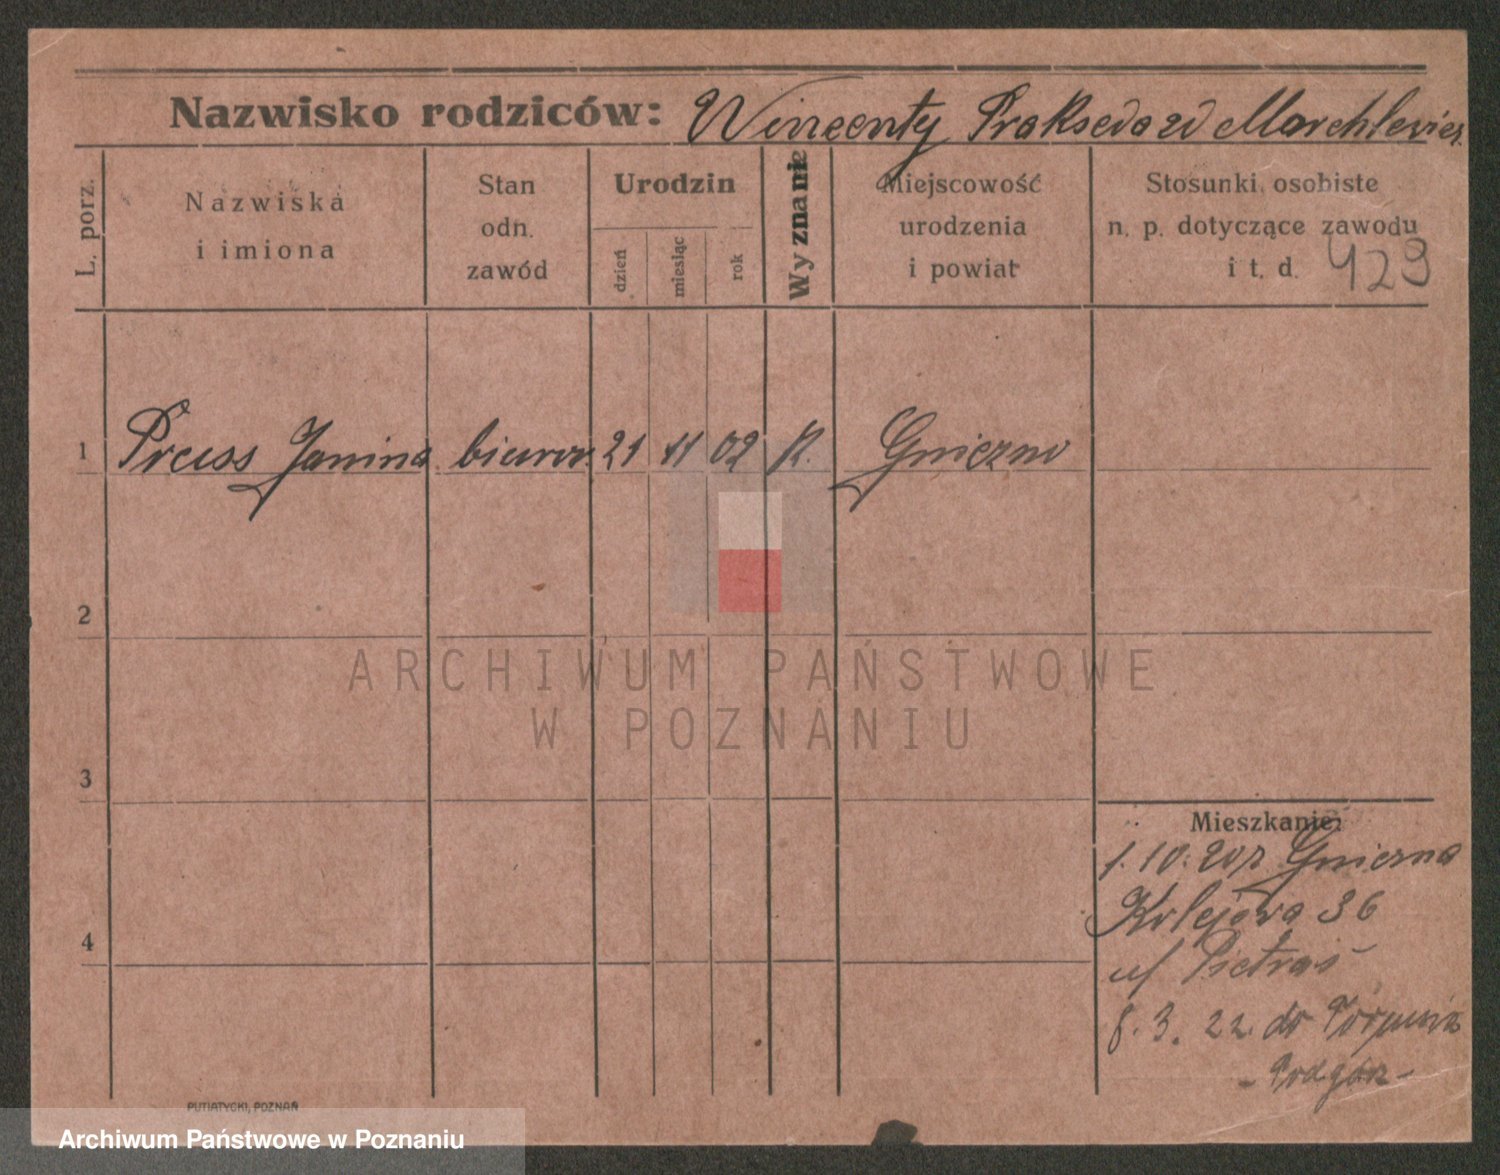 Nazwisko rodziców: Wincenty Prakseda zd Marchlewicz
L. porz.
Nazwiska i imiona
Stan odn. zawód
Urodzin
dzień
miesiąc
rok
Wyznanie
Miejscowość urodzenia i powiat
Stosunki osobiste n. p. dotyczące zawodu i t. d.
429
1 Preuss Janina biurow. 21 11 02 k. Gniezno
2
ARCHIWUM PAŃSTWOWE
W POZNANIU
3
Mieszkanie:
1. 10. 20 z Gniezna
Kolejowa 36
u/ Pietraś
4
8. 3. 22. do Torunia
- Podgórz -
PUTIATYCKI, POZNAŃ
Archiwum Państwowe w Poznaniu